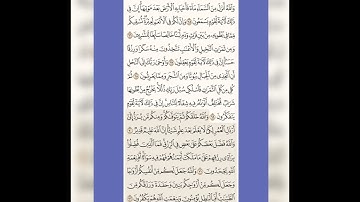 وَاللَّهُ أَنزَلَ مِنَ السَّمَاءِ مَاءً فَأَحْيَا بِهِ الْأَرْضَ بَعْدَ مَوْتِهَا إِنَّ فِي
ذَٰلِكَ لَآيَةً لِّقَوْمٍ يَسْمَعُونَ ۝ وَإِنَّ لَكُمْ فِي الْأَنْعَامِ لَعِبْرَةً نُّسْقِيكُم
مِّمَّا فِي بُطُونِهِ مِن بَيْنِ فَرْثٍ وَدَمٍ لَّبَنًا خَالِصًا سَائِغًا لِّلشَّارِبِينَ ۝
وَمِن ثَمَرَاتِ النَّخِيلِ وَالْأَعْنَابِ تَتَّخِذُونَ مِنْهُ سَكَرًا وَرِزْقًا
حَسَنًا إِنَّ فِي ذَٰلِكَ لَآيَةً لِّقَوْمٍ يَعْقِلُونَ ۝ وَأَوْحَىٰ رَبُّكَ إِلَى النَّحْلِ
أَنِ اتَّخِذِي مِنَ الْجِبَالِ بُيُوتًا وَمِنَ الشَّجَرِ وَمِمَّا يَعْرِشُونَ ۝ ثُمَّ
كُلِي مِن كُلِّ الثَّمَرَاتِ فَاسْلُكِي سُبُلَ رَبِّكِ ذُلُلًا يَخْرُجُ مِن بُطُونِهَا
شَرَابٌ مُّخْتَلِفٌ أَلْوَانُهُ فِيهِ شِفَاءٌ لِّلنَّاسِ إِنَّ فِي ذَٰلِكَ لَآيَةً لِّقَوْمٍ
يَتَفَكَّرُونَ ۝ وَاللَّهُ خَلَقَكُمْ ثُمَّ يَتَوَفَّاكُمْ وَمِنكُم مَّن يُرَدُّ إِلَىٰ
أَرْذَلِ الْعُمُرِ لِكَيْ لَا يَعْلَمَ بَعْدَ عِلْمٍ شَيْئًا إِنَّ اللَّهَ عَلِيمٌ قَدِيرٌ ۝
وَاللَّهُ فَضَّلَ بَعْضَكُمْ عَلَىٰ بَعْضٍ فِي الرِّزْقِ فَمَا الَّذِينَ فُضِّلُوا
بِرَادِّي رِزْقِهِمْ عَلَىٰ مَا مَلَكَتْ أَيْمَانُهُمْ فَهُمْ فِيهِ سَوَاءٌ أَفَبِنِعْمَةِ
اللَّهِ يَجْحَدُونَ ۝ وَاللَّهُ جَعَلَ لَكُم مِّنْ أَنفُسِكُمْ أَزْوَاجًا
وَجَعَلَ لَكُم مِّنْ أَزْوَاجِكُم بَنِينَ وَحَفَدَةً وَرَزَقَكُم مِّنَ
الطَّيِّبَاتِ أَفَبِالْبَاطِلِ يُؤْمِنُونَ وَبِنِعْمَتِ اللَّهِ هُمْ يَكْفُرُونَ ۝